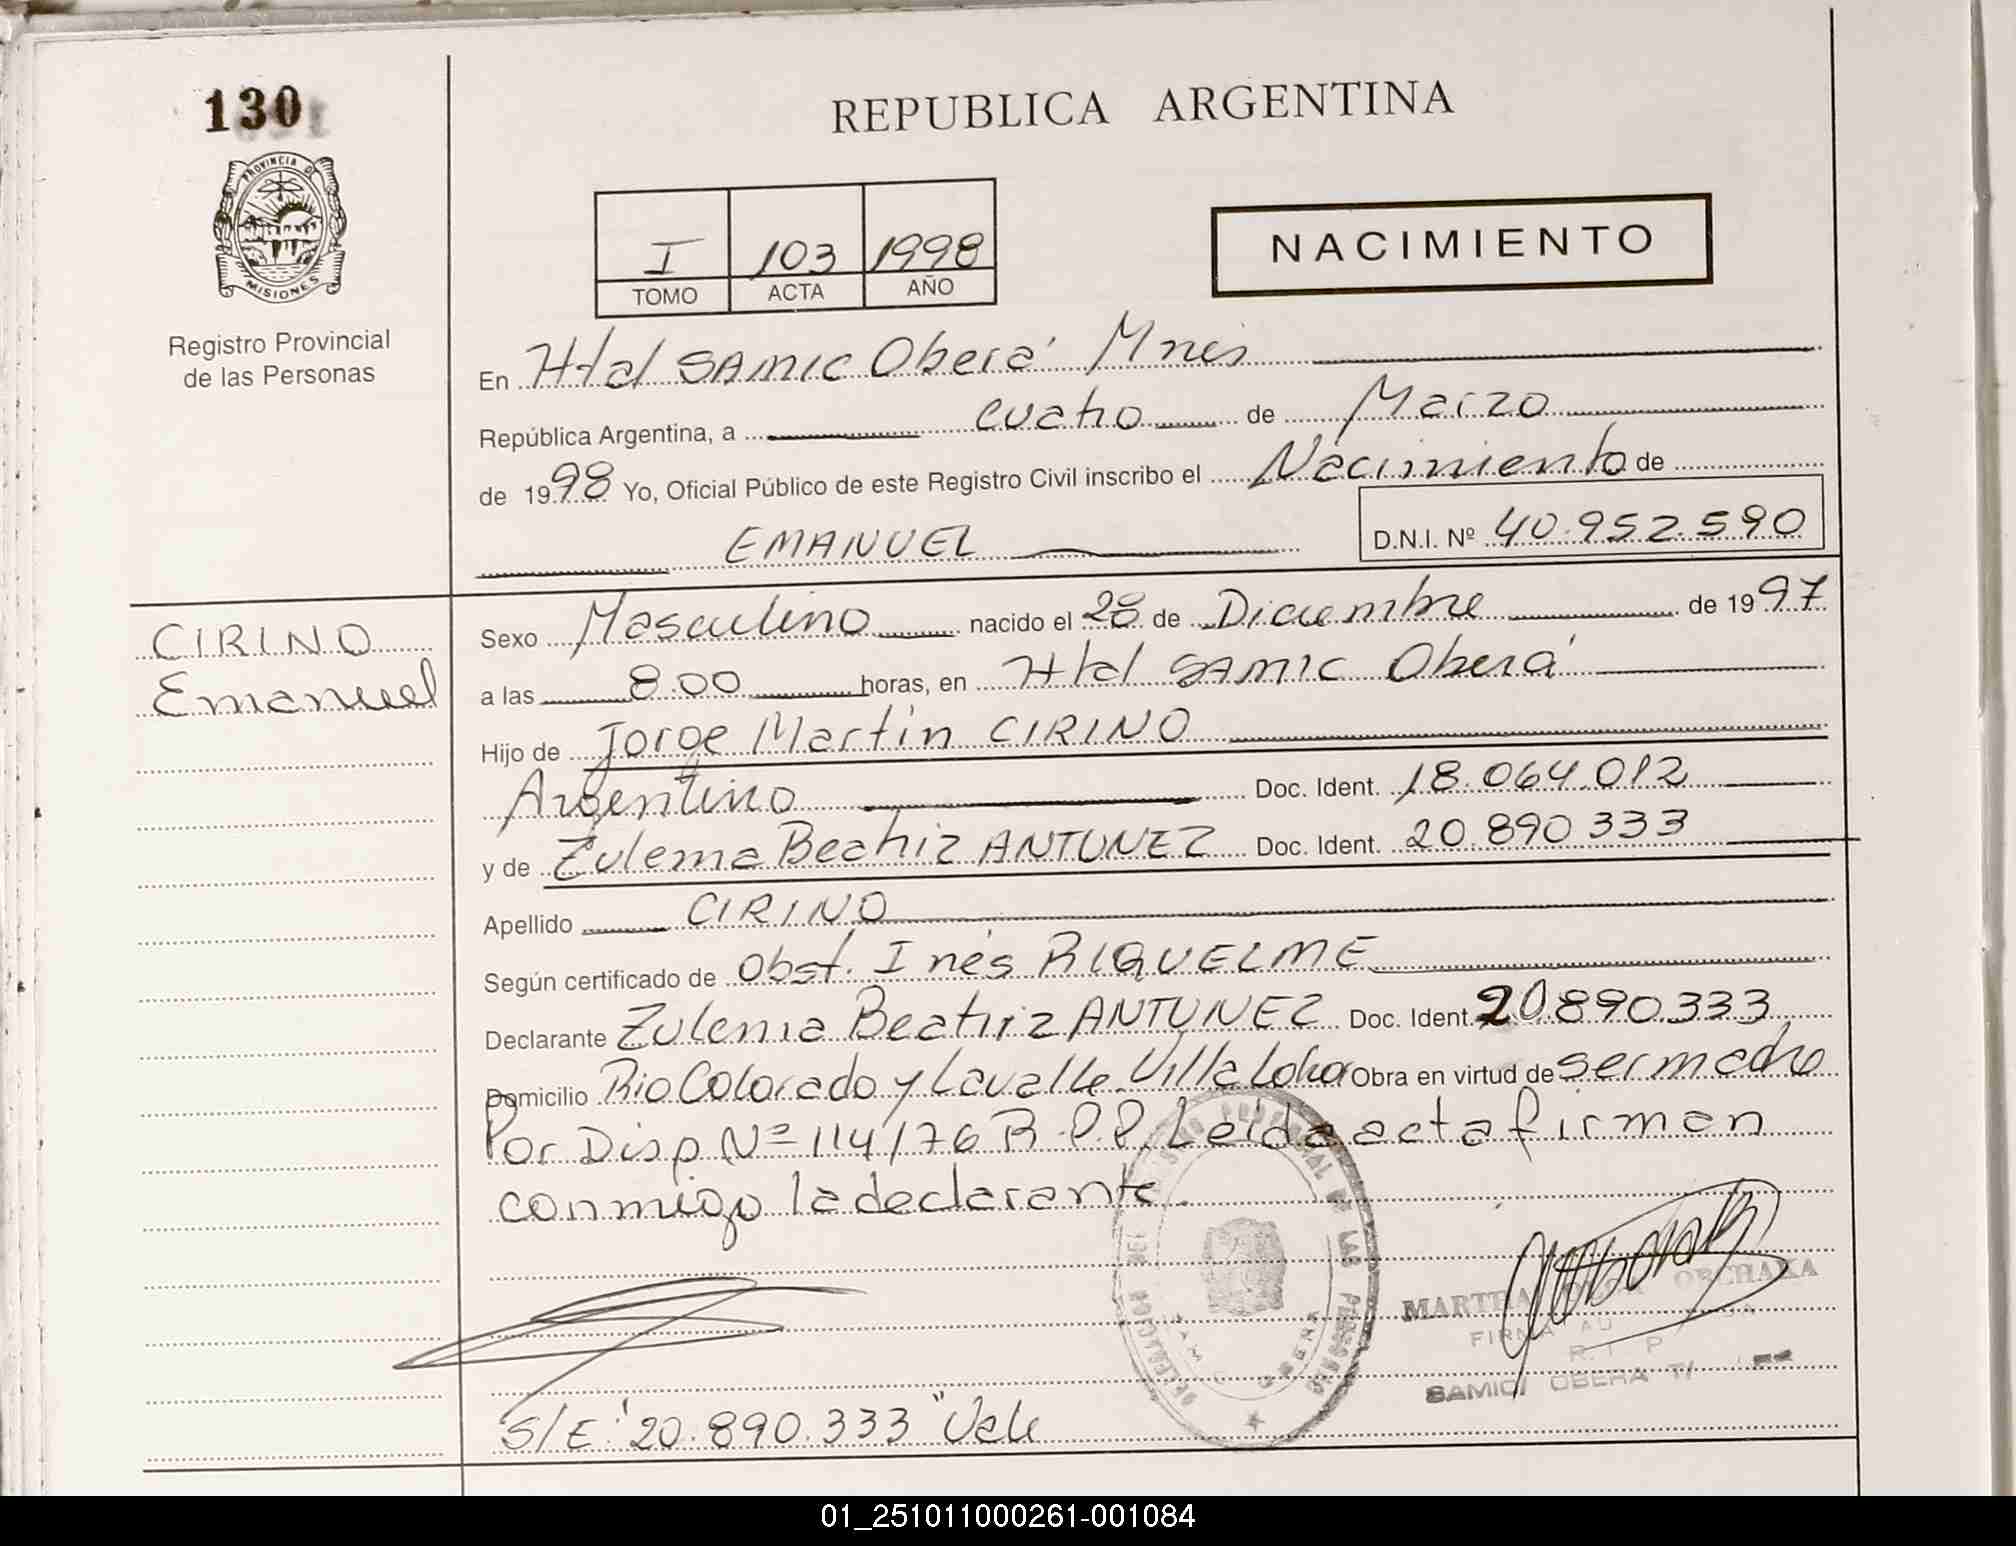 130
PROVINCIA DE
MISIONES
Registro Provincial
de las Personas
REPUBLICA ARGENTINA
I 103 1998
TOMO ACTA AÑO
NACIMIENTO
En Htal SAMIC Oberá Mnes
República Argentina, a cuatro de Marzo
de 1998 Yo, Oficial Público de este Registro Civil inscribo el Nacimiento de
EMANUEL D.N.I. Nº 40.952.590
CIRINO
Emanuel
Sexo Masculino nacido el 28 de Diciembre de 1997
a las 8.00 horas, en Htal SAMIC Oberá
Hijo de Jorge Martín CIRINO
Argentino Doc. Ident. 18.064.012
y de Zulema Beatriz ANTUNEZ Doc. Ident. 20.890.333
Apellido CIRINO
Según certificado de Obst. Inés RIQUELME
Declarante Zulema Beatriz ANTUNEZ Doc. Ident. 20.890.333
Domicilio Rio Colorado y Lavalle Villa Obra en virtud de ser madre
Por Disp Nº 114/76 R.P.P. Leída acta firman
conmigo la declarante.
MARTHA ORCHAKA
FIRMA
SAMIC OBERA
S/E "20.890.333" Vale
01_251011000261-001084